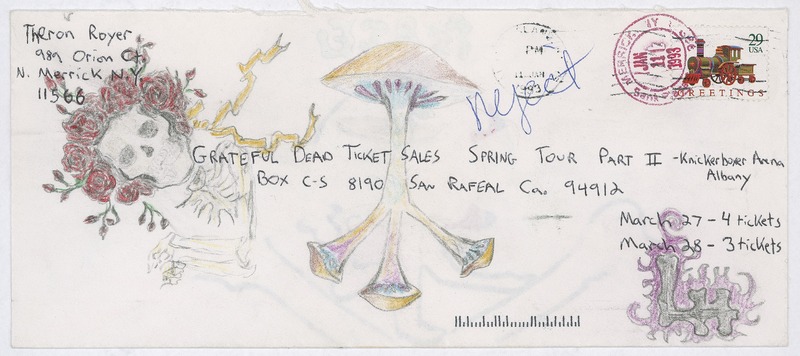 Theron Royer
989 Orion Ct.
N. Merrick N.Y.
11566
PM
1993
reject
MERRICK NY
JAN
11
1993
29
USA
GREETINGS
GRATEFUL DEAD TICKET SALES SPRING TOUR PART II - Knickerboxer Arena
Albany
BOX C-S 8190 SAN RAFEAL Ca. 94912
March 27 - 4 tickets
March 28 - 3 tickets